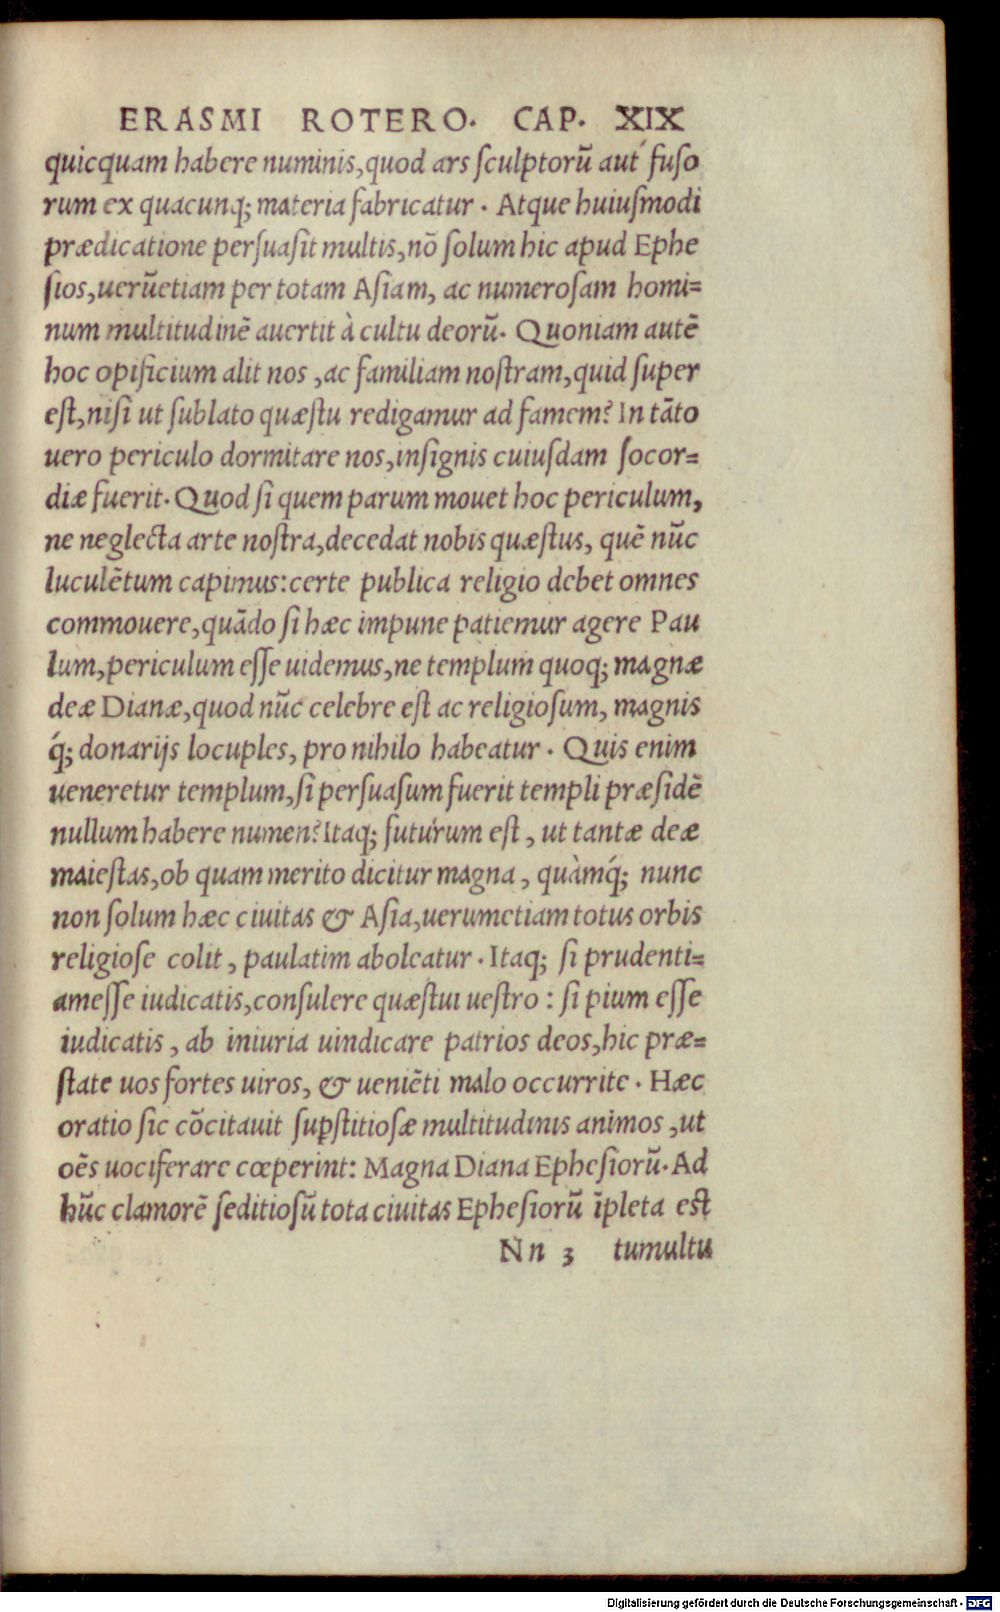 ERASMI ROTERO. CAP. XIX
quicquam habere numinis, quod ars sculptorū aut fuso
rum ex quacunq; materia fabricatur. Atque huiusmodi
prædicatione persuasit multis, nō solum hic apud Ephe
sios, uerūetiam per totam Asiam, ac numerosam homi=
num multitudinē auertit à cultu deorū. Quoniam autē
hoc opificium alit nos, ac familiam nostram, quid super
est, nisi ut sublato quæstu redigamur ad famem? In tāto
uero periculo dormitare nos, insignis cuiusdam socor=
diæ fuerit. Quod si quem parum mouet hoc periculum,
ne neglecta arte nostra, decedat nobis quæstus, quē nūc
luculētum capimus: certe publica religio debet omnes
commouere, quādo si hæc impune patiemur agere Pau
lum, periculum esse uidemus, ne templum quoq; magnæ
deæ Dianæ, quod nūc celebre est ac religiosum, magnis
q́; donarijs locuples, pro nihilo habeatur. Quis enim
ueneretur templum, si persuasum fuerit templi præsidē
nullum habere numen? Itaq; futurum est, ut tantæ deæ
maiestas, ob quam merito dicitur magna, quàmq́; nunc
non solum hæc ciuitas & Asia, uerumetiam totus orbis
religiose colit, paulatim aboleatur. Itaq; si prudenti=
am esse iudicatis, consulere quæstui uestro: si pium esse
iudicatis, ab iniuria uindicare patrios deos, hic præ=
state uos fortes uiros, & ueniēti malo occurrite. Hæc
oratio sic cōcitauit supstitiosæ multitudinis animos, ut
oēs uociferare cœperint: Magna Diana Ephesiorū. Ad
hūc clamorē seditiosū tota ciuitas Ephesiorū īpleta est
Nn 3 tumultu
Digitalisierung gefördert durch die Deutsche Forschungsgemeinschaft - DFG